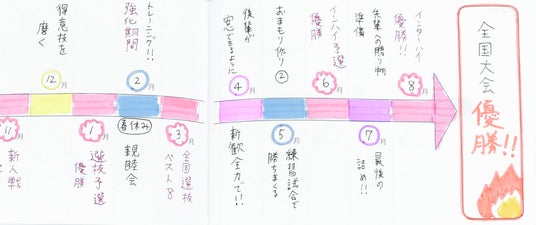 11月
新人戦
得意技を
磨く
12月
1月
選抜予選
優勝
トレーニング!!
強化期間
2月
春休み
親睦会
3月
全国選抜
ベスト8
後輩が
安心できるように
4月
新歓全力で!!
おまもり作り
②
5月
練習試合で
勝ちまくる
インハイ予選
優勝
6月
先輩への贈り物
準備
7月
最後の
詰め!!
インターハイ
優勝!!
8月
全国大会
優勝!!